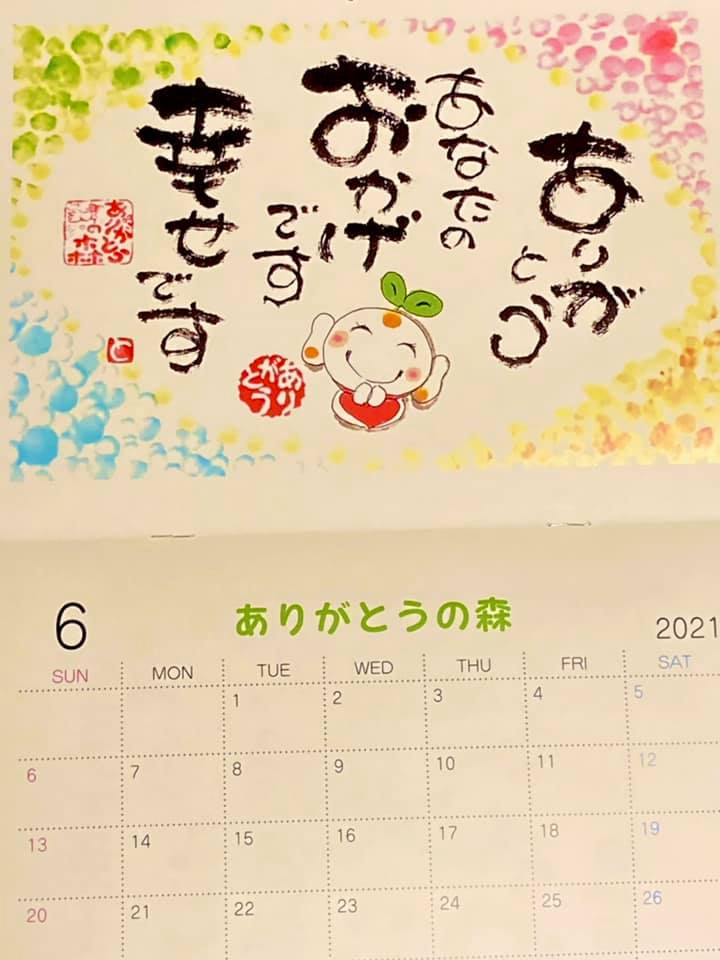 ありがとう
あなたの
おかげ
です
幸せ
です
ありがとう
の森
と
あり
がとう
6
ありがとうの森
2021
SUN MON TUE WED THU FRI SAT
1 2 3 4 5
6 7 8 9 10 11 12
13 14 15 16 17 18 19
20 21 22 23 24 25 26